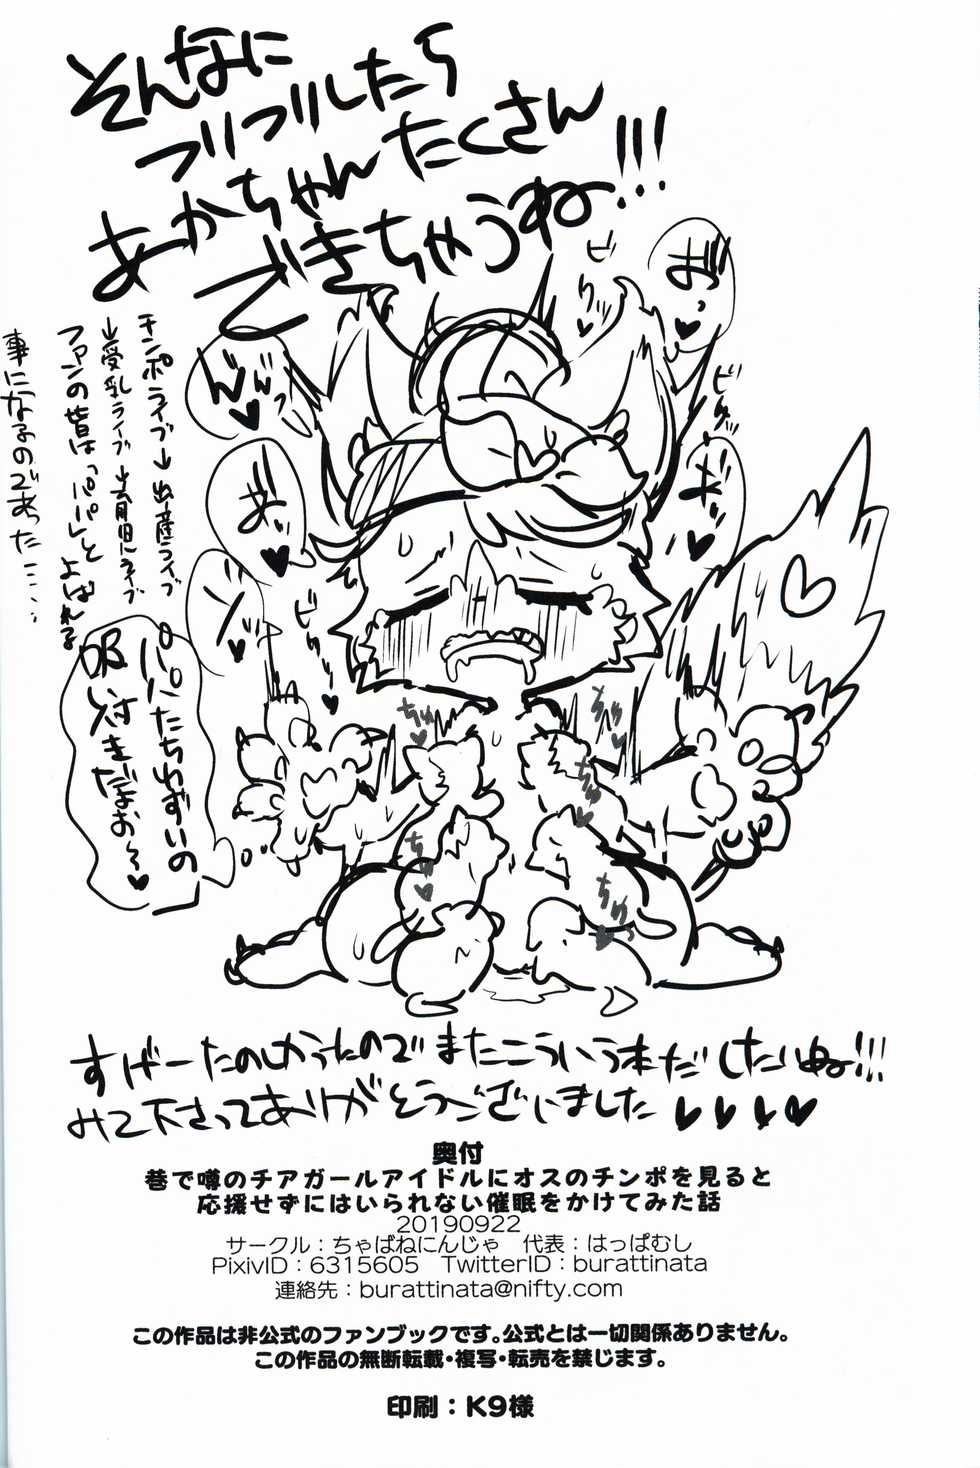 そんなに
ブリブリしたら
あかちゃんたくさん
できちゃうね!!!
チンポライブ→出産ライブ
→受乳ライブ→育児ライブ
ファンの皆は「パパ」と よばれる
事になるのであった……
お゛っ♥
ビュッ
ビュルッ
ん゛ん゛♥
あ゛ッ♥
パパたちわずいの
吸い付きだよお〜♥
ちゅ♥
ちゅっ♥
ちゅ♥
ちゅ♥
ちゅっ♥
すげーたのしかったのでまたこういう本だしたいぬ!!!
みて下さってありがとうございました♥♥♥♥
奥付
巷で噂のチアガールアイドルにオスのチンポを見ると
応援せずにはいられない催眠をかけてみた話
20190922
サークル：ちゃばねにんじゃ　代表：はっぱむし
PixivID：6315605　TwitterID：burattinata
連絡先：burattinata@nifty.com
この作品は非公式のファンブックです。公式とは一切関係ありません。
この作品の無断転載・複写・転売を禁じます。
印刷：K9様